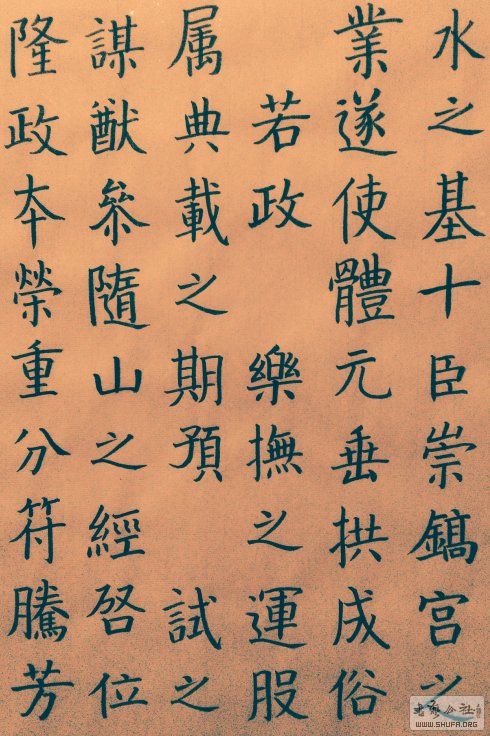 水之基十臣崇鎬宫之
業遂使體元垂拱成俗
若政 樂撫之運股
属典載之期預 試之
謀猷叅隨山之經啓位
隆政夲榮重分符騰芳
WWW.SHUFA.ORG